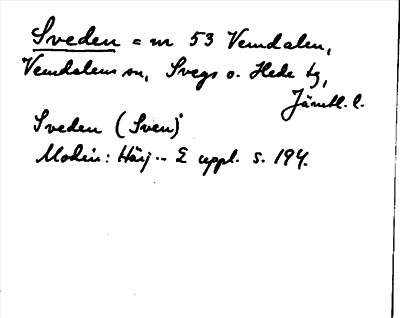 Sveden = nr 53 Vemdalen,
Vemdalens sn, Svegs o. Hede tg,
Jämtl. l.
Sveden (Sven)
Modin: Härj.. 2 uppl. s. 194.